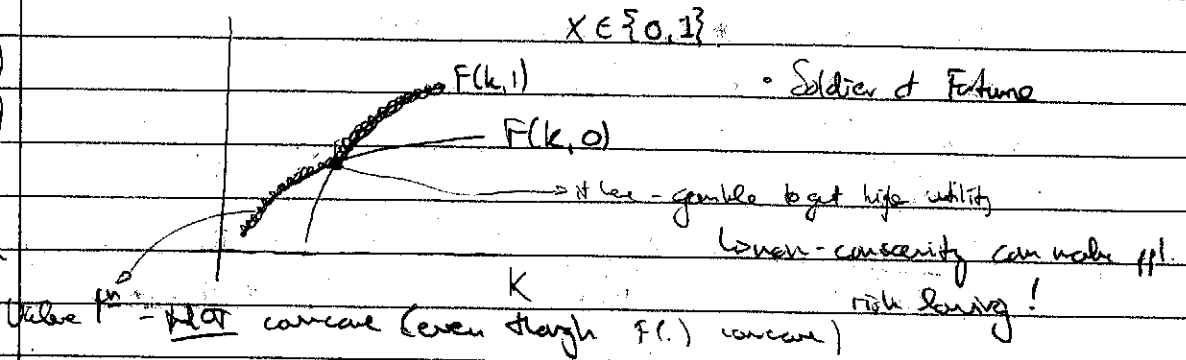 X ∈ {0,1}
F(k,1)
• Soldier of Fortune
F(k,0)
if here - gamble to get high utility
↳ non-concavity can make ppl
risk loving!
K
Value fⁿ - NOT concave (even though F(.) concave)